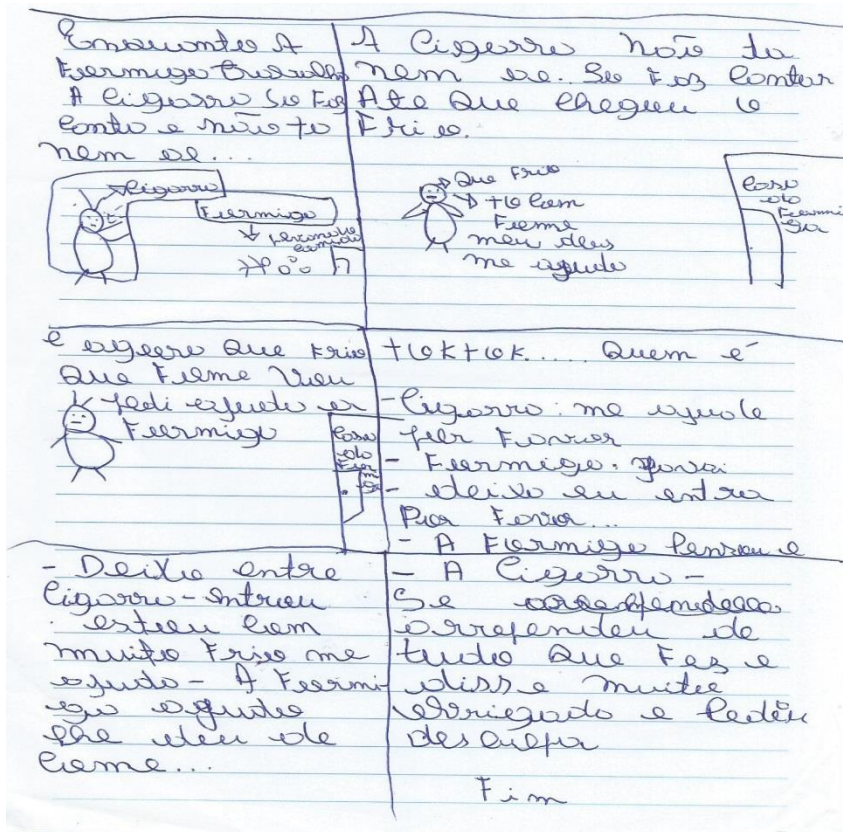 Enquanto A
Fuermiga trabalha
A cigarra So Faz
canta e não to
nem ae...
Cigarra
Fuermiga
A Cigarra não ta
nem ae.. So Faz Contar
Ate Que chegou o
Frio.
Que Frio
to com
Fome
meu deus
me ajuda
Casa
da
Fuermi
ga
e agora Que Frio
Que Fome Vou
pedi ajuda a
Fuermiga
Casa
da
Fuer
mi
ga
toktok..... Quem é
- Cigarra: me ajude
por Favor
- Fuermiga.
- deixa eu entra
Por Favor...
- A Fuermiga Pensou e
- Deixo entre
Cigarra - Entrou
estou com
muito Frio me
ajuda - A Fuermi
ga ajuda
lhe deu de
come...
- A Cigarra -
Se
arrependeu de
tudo Que Fes e
disse muito
obrigado e Pediu
desculpa
Fim